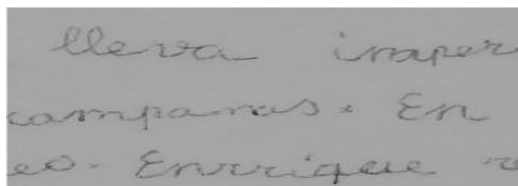 lleva imper
campanas. En
eo. Enrrique r